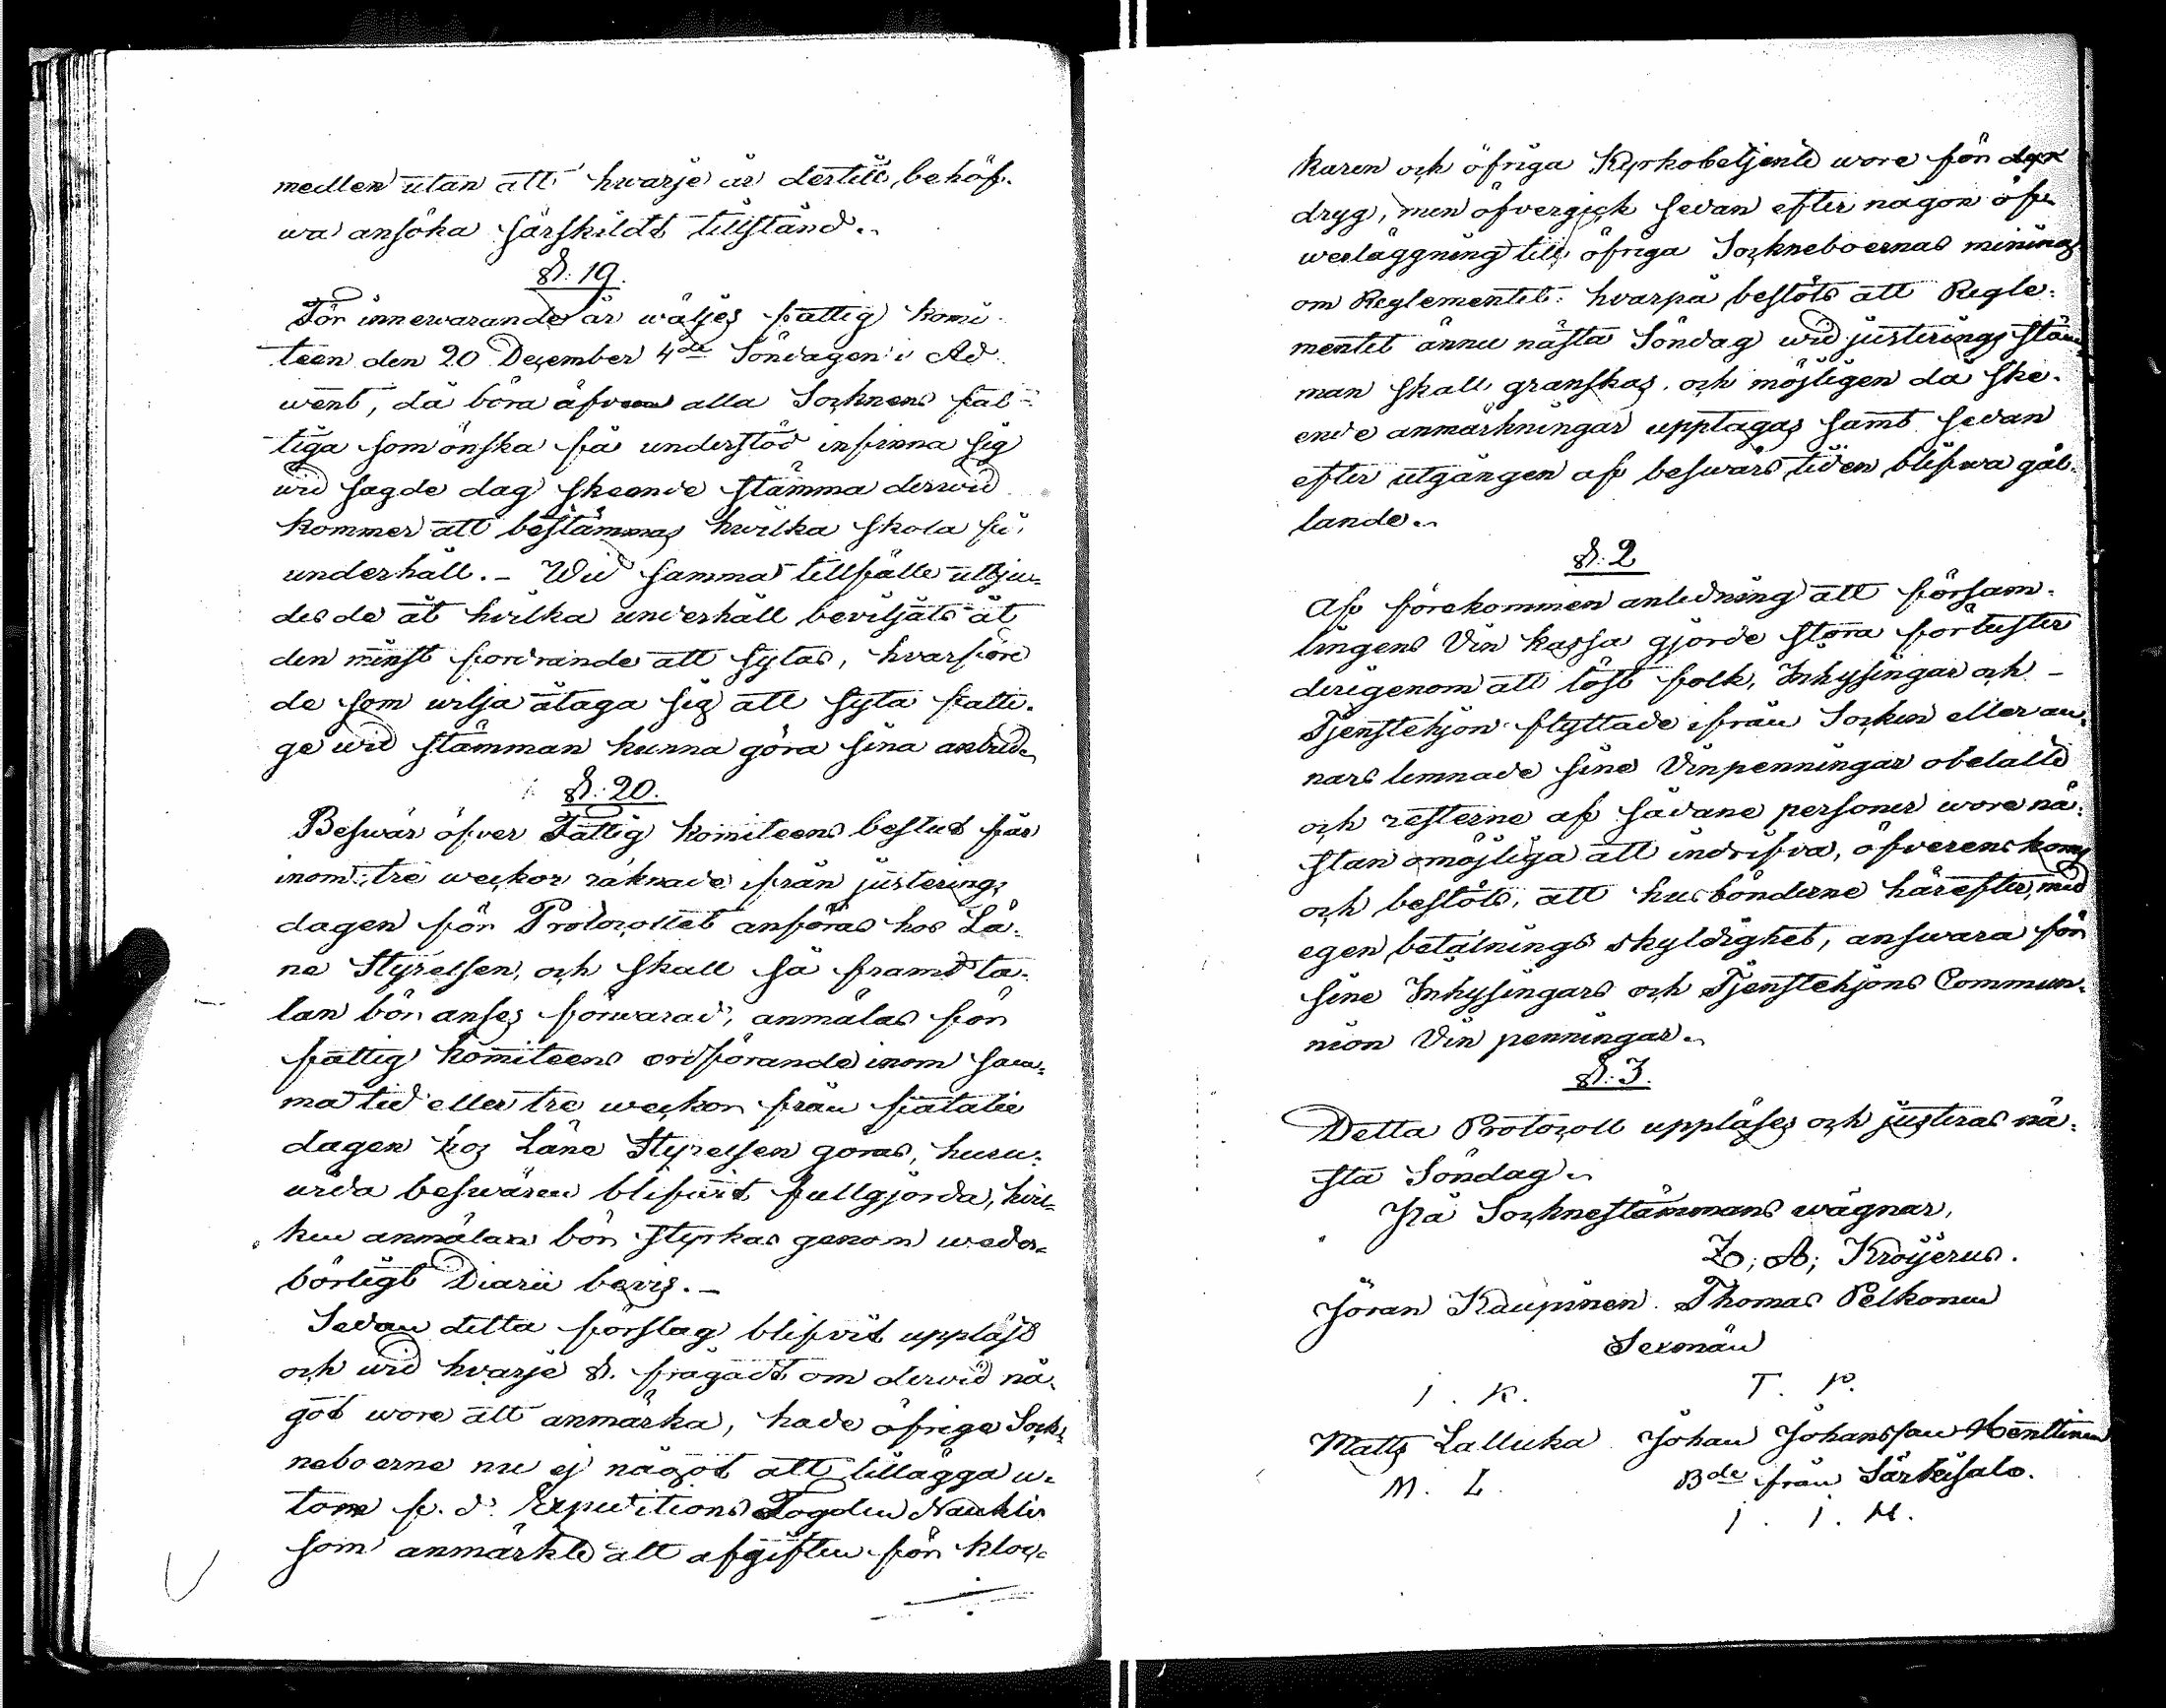 medlen utan att hwarje år dertill behöf-
wa ansöka särskildt tillstånd.
§. 19.
För innewarande år wäljes fattig komi-
teen den 20 December 4de Söndagen i Ad-
went, då böra äfven alla Socknens fat-
tiga som önska få understöd infinna sig
wid sagde dag skeende stämma derwid
kommer att bestämmas hwilka skola få
underhåll. - Wid samma tillfälle utbju-
des de åt hvilka underhåll beviljats åt
den minst fordrande att sytas, hvarföre
de som wilja åtaga sig att syta fatti-
ge wid stämman kunna göra sina anbud.
§. 20.
Beswär öfver Fattig komiteens beslut får
inom tre weckor räknade ifrån justerings
dagen för Protocollet anföras hos Lä-
ne Styrelsen, och skall så framt ta-
lan bör anses förwarad, anmälas för
fattig komiteens ordförande inom sam-
ma tid eller tre weckor från fatalie
dagen hos Läne Styrelsen göras, huru-
wida beswären blifwit fullgjorda, hvil-
ken anmälan bör styrkas genom weder-
börligt Diarii bevis. -
Sedan detta förslag blifvit uppläst
och wid hvarje §. frågadt om derwid nå-
got wore att anmärka, hade öfrige Sock-
neboerne nu ej något att tillägga u-
tom f. d. Expeditions Fogden Naukler
som anmärkte att afgiften för kloc-
karen och öfriga Kyrkobetjente wore för
dryg, men öfvergick sedan efter någon öf-
werläggning till öfriga Sockneboernas mening
om Reglementet: hvarpå beslöts att Regle-
mentet ännu nästa Söndag wid justerings stäm-
man skall granskas och möjligen då ske-
ende anmärkningar upptagas samt sedan
efter utgången af beswärs tiden blifwa gäl-
lande.
§. 2
Af förekommen anledning att försam-
lingens Vin kassa gjorde stora förluster
derigenom att löst folk, Inhysingar och -
Tjenstehjon flyttade ifrån Socken eller an-
nars lemnade sine Vinpenningar obetalte
och resterne af sådane personer wore nä-
stan omöjliga att indrifva, öfverenskoms
och beslöts, att husbönderne härefter, med
egen betalnings skyldighet, answara för
sine Inhysingars och Tjenstehjons Commun-
nion Vin penningar.
§. 3.
Detta Protocoll uppläses och justeras nä-
sta Söndag.
På Sockneståmmans wägnar,
Z; A; Kröÿerus.
Jöran Kaupinen. Thomas Pelkonen
Sexmän
I. K. T. P.
Matts Lalluka Johan Johansson Henttinen
M. L. Bde från Särkisalo.
I. I. H.